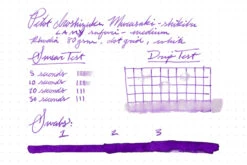 Pilot Iroshizuku Murasaki-shikibu
LAMY safari - medium
Rhodia 80 gram, dot grid, white
Smear Test
Drip Test
5 seconds
10 seconds
20 seconds
30 seconds
Swabs:
1 2 3